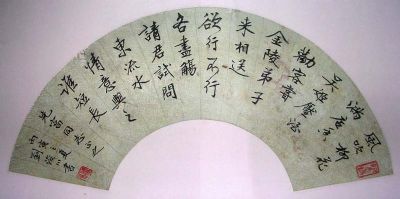 風吹柳花
滿店香
吳姬壓酒
勸客嘗
金陵弟子
來相送
欲行不行
各盡觴
請君試問
東流水
情意與之
誰短長
同志正之
丙寅之夏
劉
書